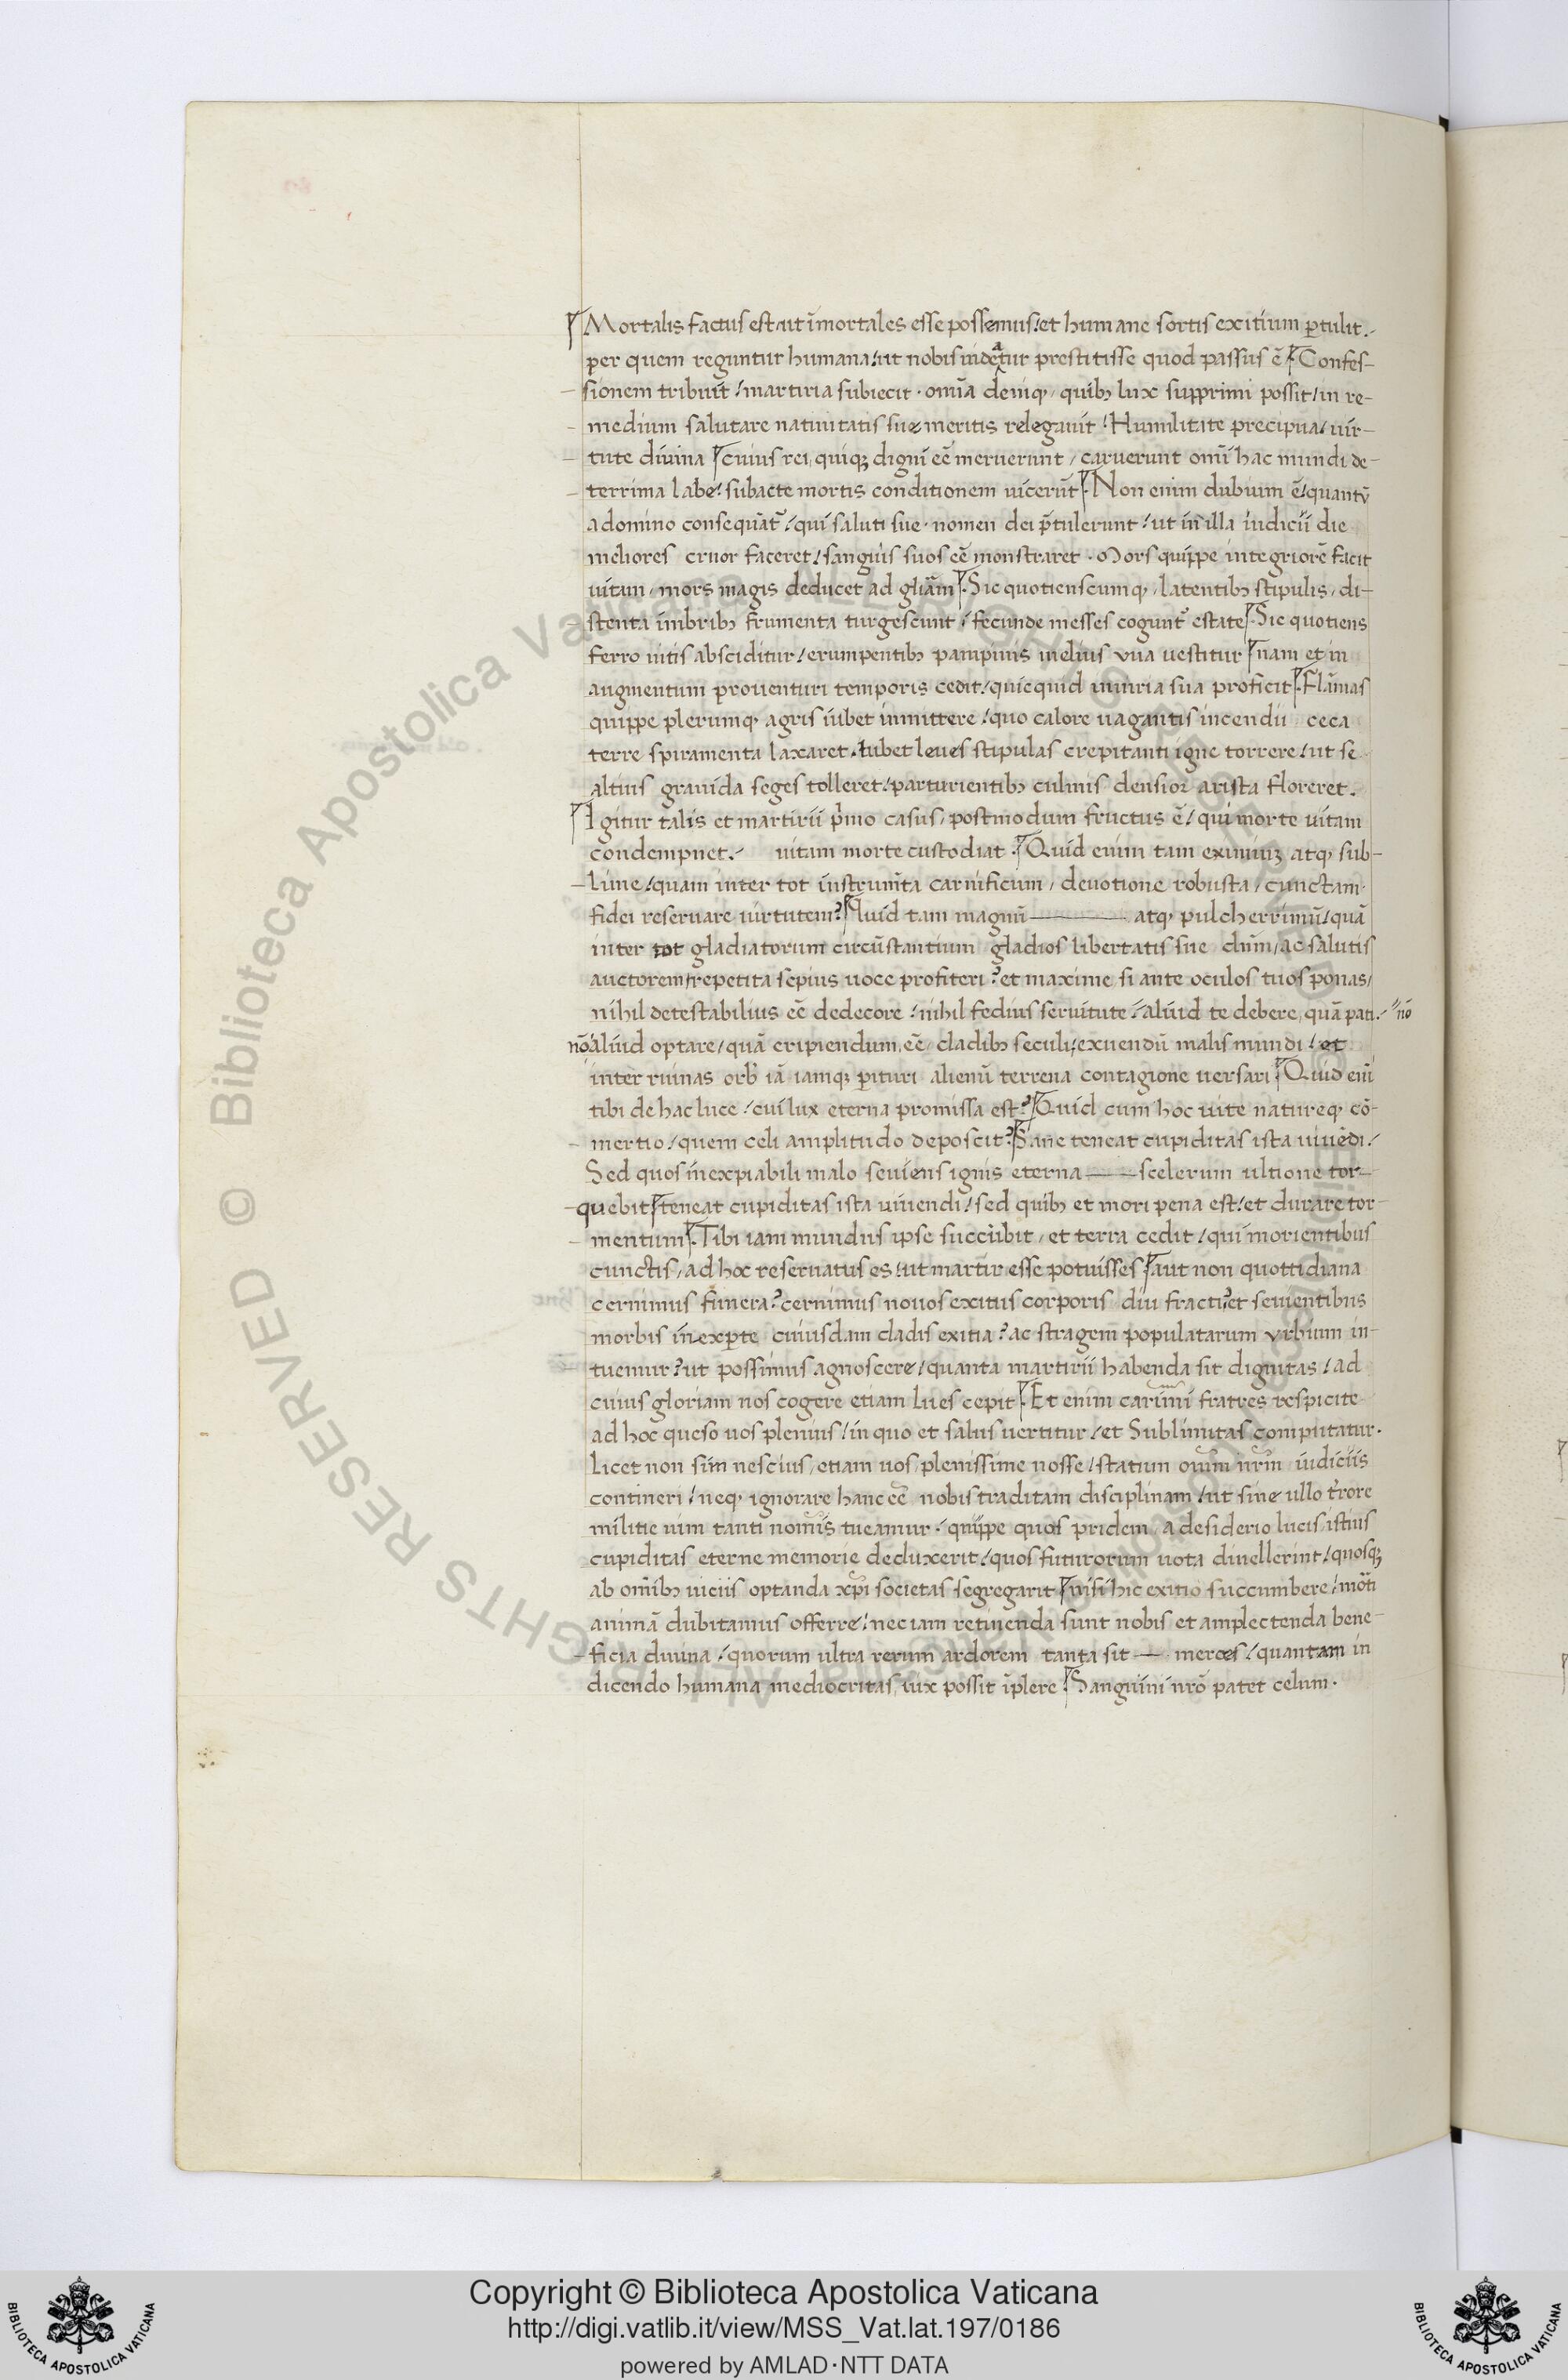 Mortalis factus est ut īmortales esse possemus et humane sortis exitium ꝑtulit.
per quem reguntur humana ut nobis uideatur prestitisse quod passus ē Confes-
sionem tribuit martiria subiecit · omīa deniq; quib; lux supprimi possit in re-
medium salutare natiuitatis sue meritis relegauit Humilitate precipua uir-
tute diuina cuius rei quiq; digni eē meruerunt caruerunt omī hac mundi de-
terrima labe subacte mortis conditionem uicerūt Non enim dubium ē quantū
a domino consequāt᷑ qui saluti sue nomen dei p̄tulerunt ut in illa iudicii die
meliores cruor faceret sanguis suos eē monstraret · Mors quippe integriorē facit
uitam mors magis deducet ad gliām Sic quotienscumq; latentib; stipulis di-
stenta imbrib; frumenta turgescunt fecunde messes cogunt᷑ estate Sic quotiens
ferro uitis absciditur erumpentib; pampinis melius uua uestitur nam et in
augmentum prouenturi temporis cedit quicquid iniuria sua proficit Flāmas
quippe plerumq; agris iubet inmittere quo calore uagantis incendii ceca
terre spiramenta laxaret iubet leues stipulas crepitanti igne torrere ut se
altius grauida seges tolleret parturientib; culmis densior arista floreret.
Igitur talis et martirii p̄mo casus postmodum fructus ē qui morte uitam
condempnet. uitam morte custodiat Quid enim tam eximium atq; sub-
lime quam inter tot instrumta carnificum deuotione robusta cunctam
fidei reseruare uirtutem? Quid tam magnū — atq; pulcherrimū quā
inter tot gladiatorum circūstantium gladios libertatis sue dnm ac salutis
auctorem repetita sepius uoce profiteri? et maxime si ante oculos tuos ponas
nihil detestabilius eē dedecore nihil fedius seruitute aliud te debere quā pati. nō
nō aliud optare quā eripiendum eē cladib; seculi exuendū malis mundi et
inter ruinas orb' iā iamq; ꝑituri alienū terrena contagione uersari Quid eni
tibi de hac luce cui lux eterna promissa est? Quid cum hoc uite natureq; cō-
mertio quem celi amplitudo deposcit? Sane teneat cupiditas ista uiuēdi
Sed quos inexpiabili malo seuiens ignis eterna — scelerum ultione tor-
quebit teneat cupiditas ista uiuendi sed quib; et mori pena est et durare tor-
mentum Tibi iam mundus ipse succubit et terra cedit qui morientibus
cunctis ad hoc reseruatus es ut martir esse potuisses aut non quottidiana
cernimus funera? cernimus nouos exitus corporis diu fracti? et seuientibus
morbis inexꝑte cuiusdam cladis exitia? ac stragem populatarum urbium in-
tuemur? ut possimus agnoscere quanta martirii habenda sit dignitas ad
cuius gloriam nos cogere etiam lues cepit Et enim carimi fratres respicite
ad hoc queso uos plenius in quo et salus uertitur et Sublimitas computatur.
licet non sim nescius etiam uos plenissime nosse statum oium nrm iudiciis
contineri neq; ignorare hanc eē nobis traditam disciplinam ut sine ullo trore
militie uim tanti nomis tueamur quippe quos pridem a desiderio lucis istius
cupiditas eterne memorie deduxerit quos futurorum uota diuellerint quosq;
ab omib; uiciis optanda xp̄i societas segregarit nisi hic exitio succumbere moti
animā dubitamus offerre nec iam retinenda sunt nobis et amplectenda bene-
ficia diuina quorum ultra rerum ardorem tanta sit — merces quantam in
dicendo humana mediocritas uix possit īplere Sanguini nrō patet celum.
Copyright © Biblioteca Apostolica Vaticana
http://digi.vatlib.it/view/MSS_Vat.lat.197/0186
powered by AMLAD·NTT DATA